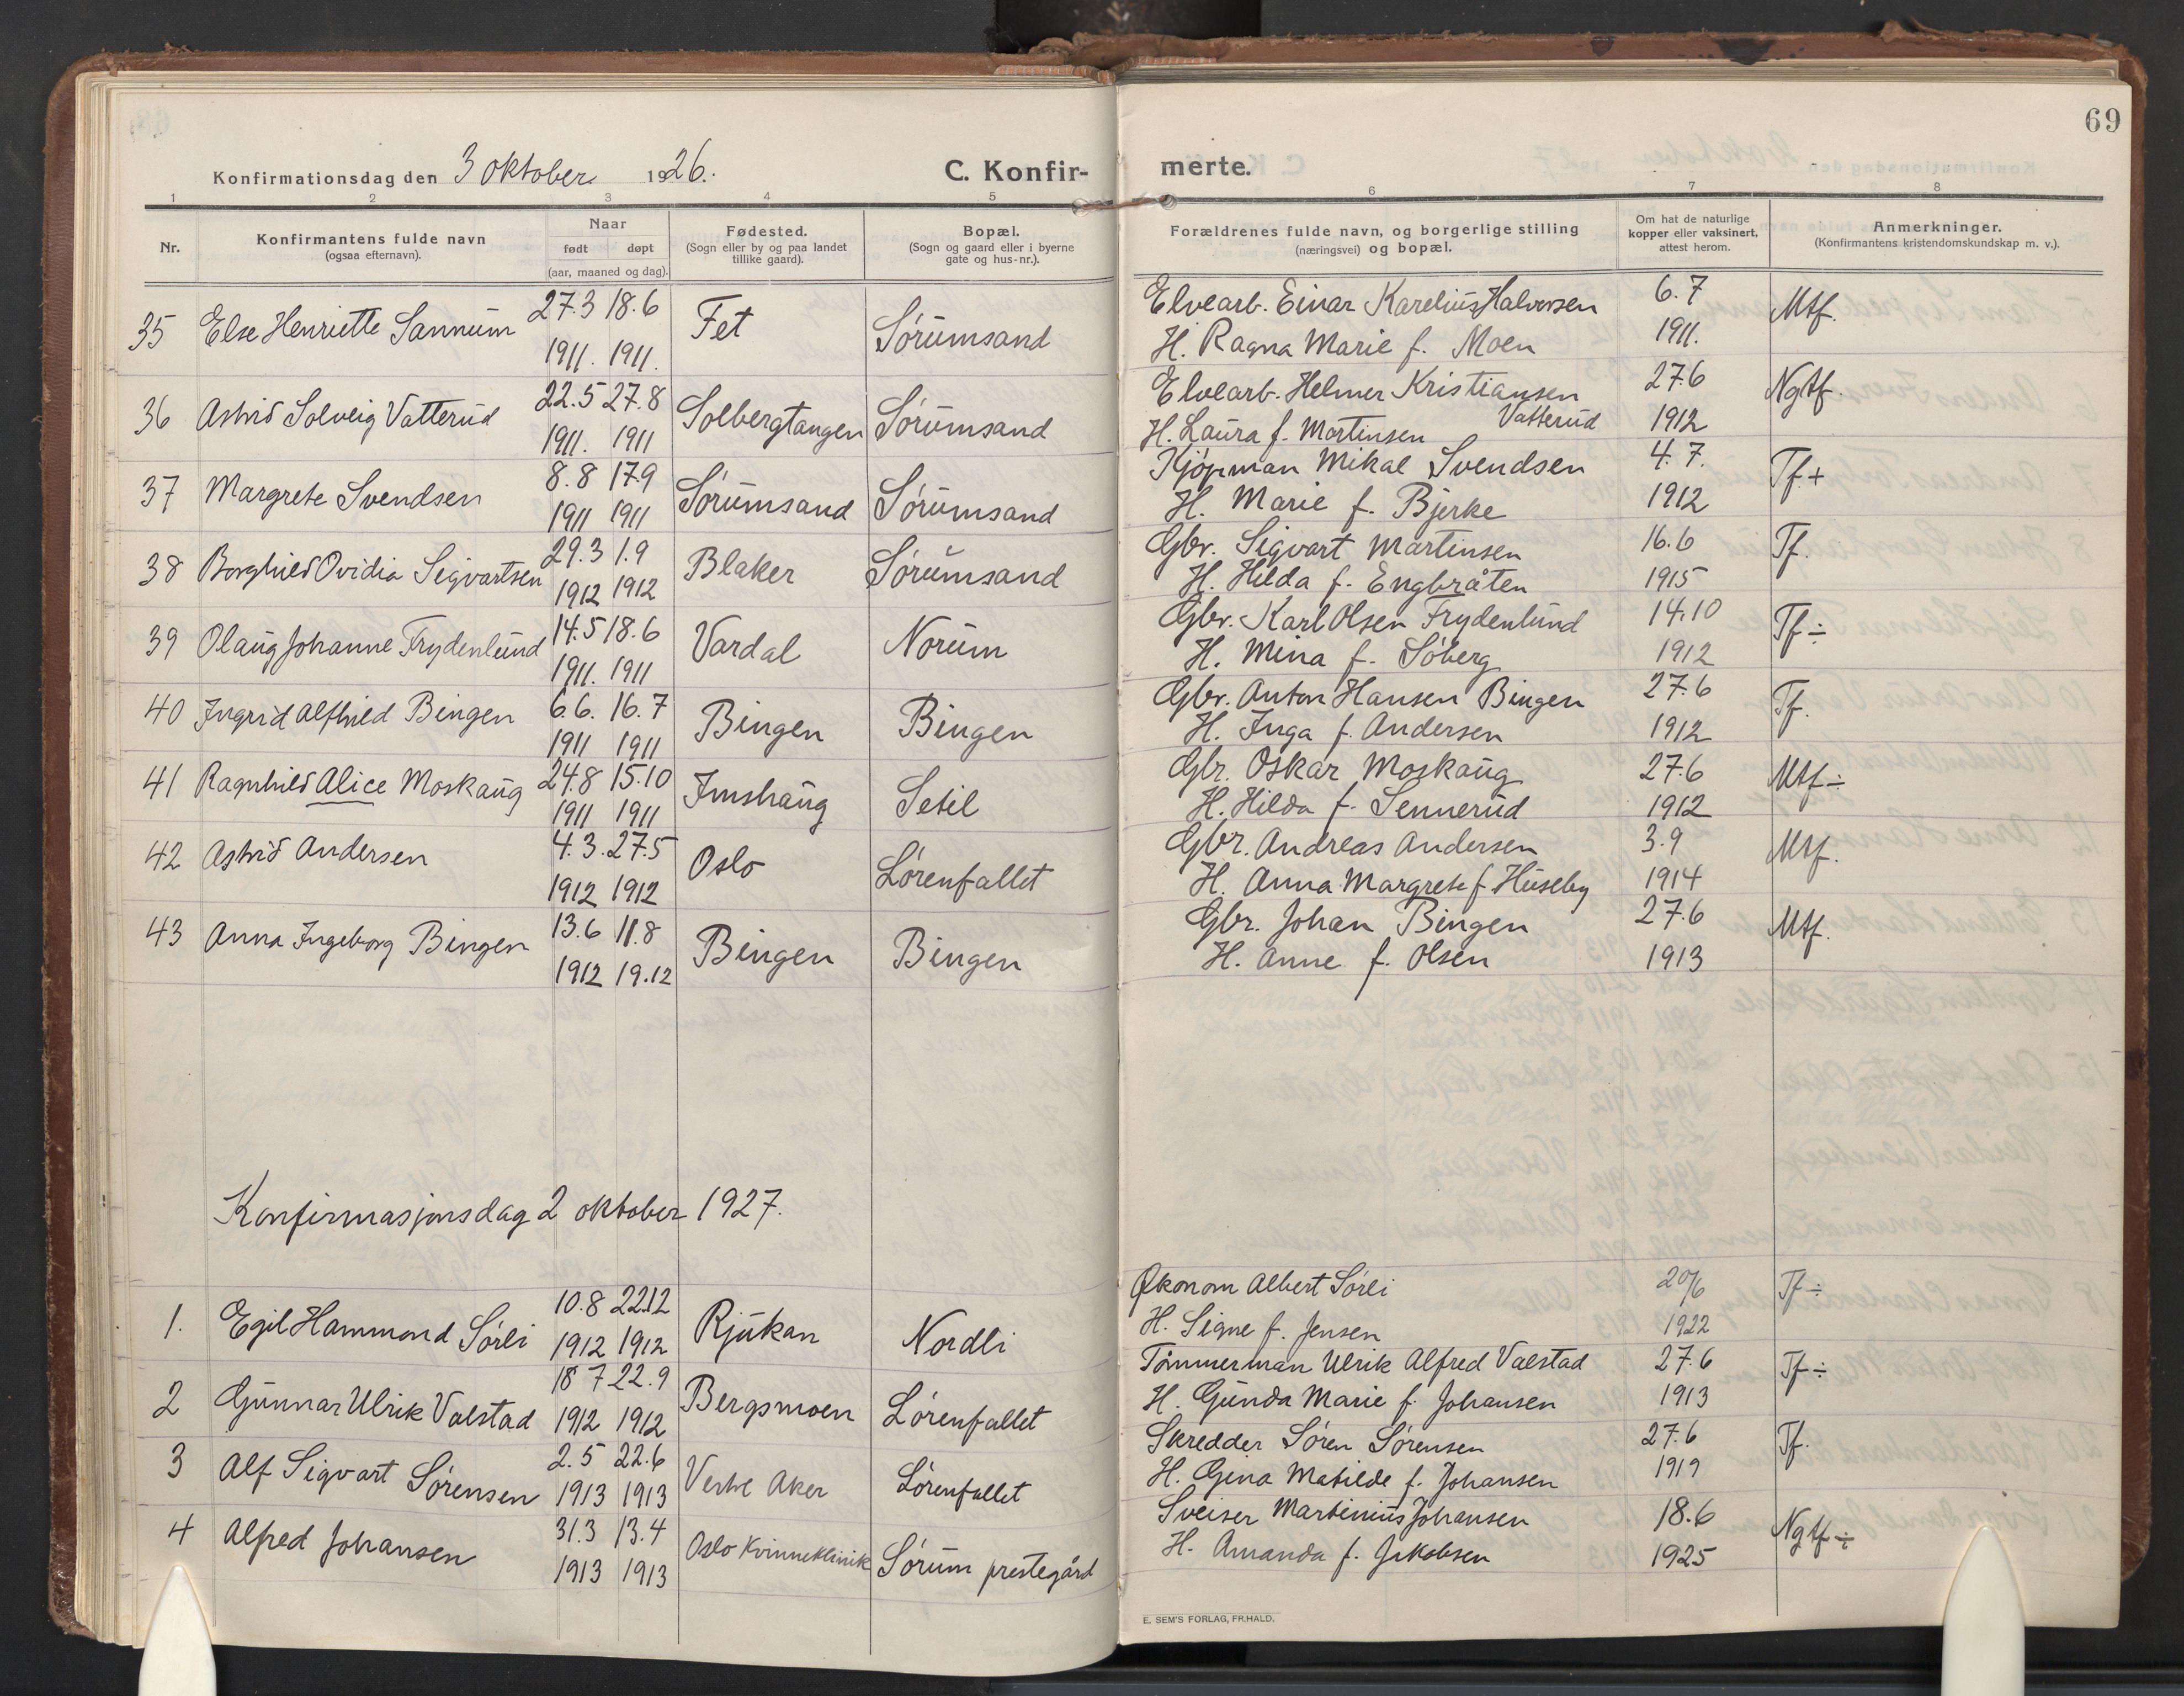 69
Konfirmationsdag den 3 oktober 1926.
C. Konfir-
merte.
1 2 3 4 5 6 7 8
Nr.
Konfirmantens fulde navn
(ogsaa efternavn).
Naar
født døpt
(aar, maaned og dag).
Fødested.
(Sogn eller by og paa landet
tillike gaard).
Bopæl.
(Sogn og gaard eller i byerne
gate og hus-nr.).
Forældrenes fulde navn, og borgerlige stilling
(næringsvei) og bopæl.
Om hat de naturlige
kopper eller vaksinert,
attest herom.
Anmerkninger.
(Konfirmantens kristendomskundskap m. v.).
35 Else Henriette Sannum 27.3 18.6 Fet Sørumsand Elvearb. Einar Karelius Halvorsen 6.7 Mtf.
1911. 1911. H. Ragna Marie f. Moen 1911.
36 Astrid Solveig Vatterud 22.5 27.8 Solbergtangen Sørumsand Elvearb. Helmer Kristiansen 27.6 Ngtf.
Vatterud
1911. 1911 H. Laura f. Martinsen 1912
37 Margrete Svendsen 8.8 17.9 Sørumsand Sørumsand Kjøpman Mikal Svendsen 4.7. Tf+
1911 1911 H. Marie f. Bjerke 1912
38 Borghild Ovidia Sigvartsen 29.3 1.9 Blaker Sørumsand Gbr. Sigvart Martinsen 16.6 Tf.
1912 1912 H. Hilda f. Engbråten 1915
39 Olaug Johanne Frydenlund 14.5 18.6 Vardal Norum Gbr. Karl Olsen Frydenlund 14.10 Tf÷
1911. 1911 H. Mina f. Søberg 1912
40 Ingrid Alfhild Bingen 6.6. 16.7 Bingen Bingen Gbr. Anton Hansen Bingen 27.6 Tf.
1911 1911 H. Inga f. Andersen 1912
41 Ragnhild Alice Moskaug 24.8 15.10 Imshaug Setil Gbr. Oskar Moskaug 27.6 Mtf÷
1911 1911 H. Hilda f. Sennerud 1912
42 Astrid Andersen 4.3. 27.5 Oslo Lørenfallet Gbr. Andreas Andersen 3.9 Mtf.
1912 1912 H. Anna Margrete f. Huseby 1914
43 Anna Ingeborg Bingen 13.6 11.8 Bingen Bingen Gbr. Johan Bingen 27.6 Mtf.
1912 19.12 H. Anne f. Olsen 1913
Konfirmasjonsdag 2 oktober 1927.
1. Egil Hammond Sørli 10.8 22.12 Rjukan Nordli Økonom Albert Sørli 20/6 Tf÷
1912 1912 H. Signe f. Jensen 1922
2 Gunnar Ulrik Valstad 18 7 22.9 Bergsmoen Lørenfallet Tømmerman Ulrik Alfred Valstad 27.6 Tf÷
1912 1912 H. Gunda Marie f. Johansen 1913
3 Alf Sigvart Sørensen 2.5 22.6 Vestre Aker Lørenfallet Skredder Søren Sørensen 27.6 Tf.
1913 1913 H. Gina Matilde f. Johansen 1919
4 Alfred Johansen 31.3 13.4 Oslo Kvinneklinik Sørum prestegård Sveiser Martinius Johansen 18.6 Ngtf÷
1913 1913 H. Amanda f. Jakobsen 1925
E. SEM'S FORLAG, FR.HALD.